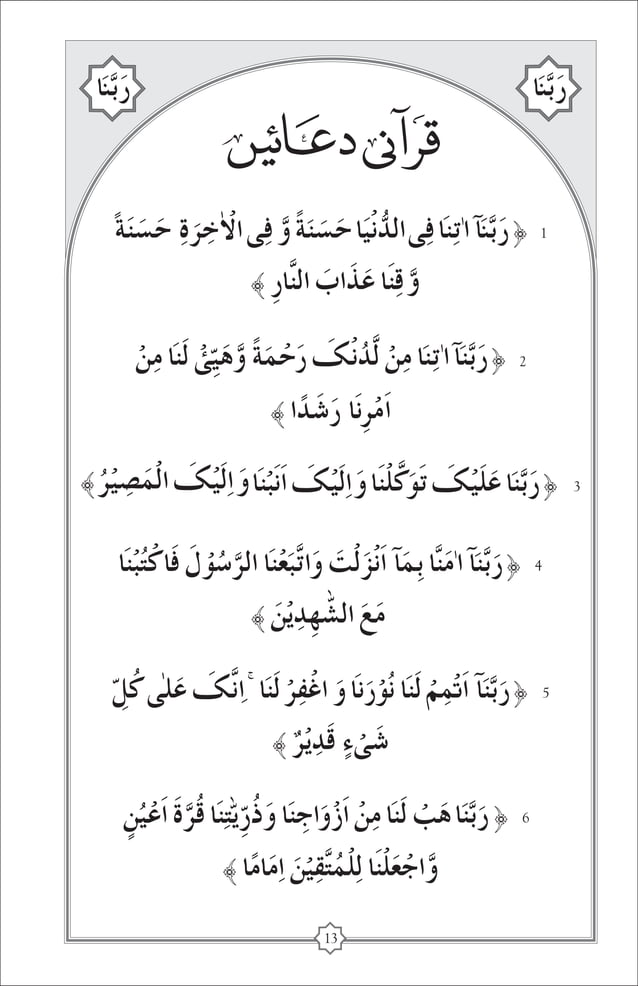 رَبَّنَا
رَبَّنَا
قرآنی دعائیں
1 ﴿ رَبَّنَآ اٰتِنَا فِی الدُّنْیَا حَسَنَةً وَّ فِی الْاٰخِرَةِ حَسَنَةً
وَّ قِنَا عَذَابَ النَّارِ ﴾
2 ﴿ رَبَّنَآ اٰتِنَا مِنْ لَّدُنْکَ رَحْمَةً وَّهَیِّئْ لَنَا مِنْ
اَمْرِنَا رَشَدًا ﴾
3 ﴿ رَبَّنَا عَلَیْکَ تَوَکَّلْنَا وَ اِلَیْکَ اَنَبْنَا وَ اِلَیْکَ الْمَصِیْرُ ﴾
4 ﴿ رَبَّنَآ اٰمَنَّا بِمَآ اَنْزَلْتَ وَاتَّبَعْنَا الرَّسُوْلَ فَاکْتُبْنَا
مَعَ الشّٰهِدِیْنَ ﴾
5 ﴿ رَبَّنَآ اَتْمِمْ لَنَا نُوْرَنَا وَ اغْفِرْ لَنَا ۚ اِنَّکَ عَلٰی کُلِّ
شَیْءٍ قَدِیْرٌ ﴾
6 ﴿ رَبَّنَا هَبْ لَنَا مِنْ اَزْوَاجِنَا وَذُرِّیّٰتِنَا قُرَّةَ اَعْیُنٍ
وَّاجْعَلْنَا لِلْمُتَّقِیْنَ اِمَامًا ﴾
13